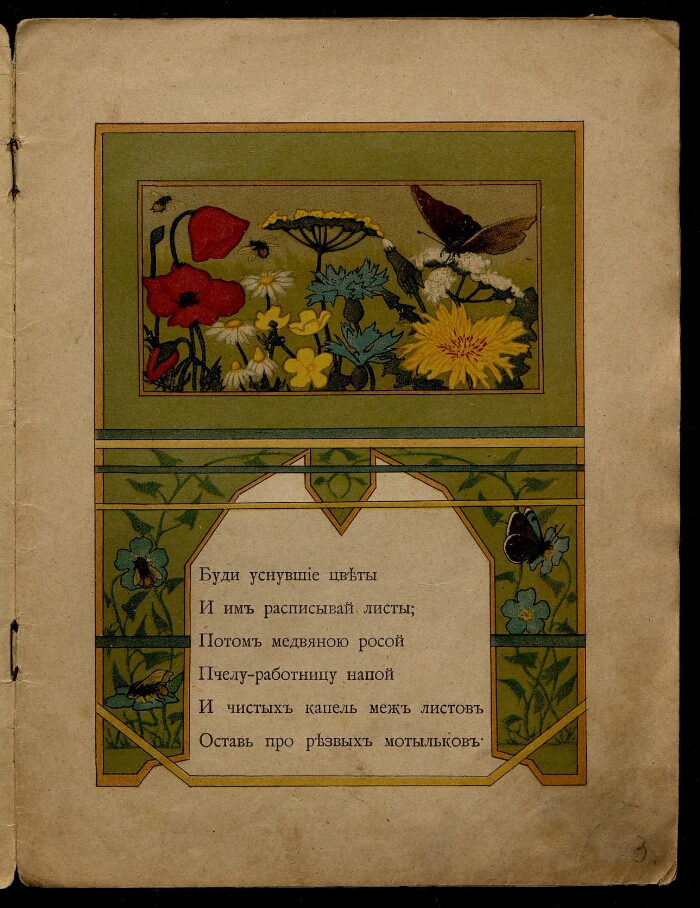 Буди уснувшіе цвѣты
И имъ расписывай листы;
Потомъ медвяною росой
Пчелу-работницу напой
И чистыхъ капель межъ листовъ
Оставь про рѣзвыхъ мотыльковъ.
3.